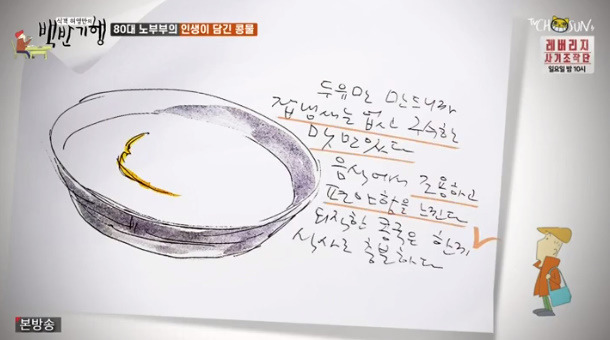 식객 허영만의
백반기행
80대 노부부의 인생이 담긴 콩물
CHOSUN
레버리지
사기조작단
일요일 밤 10시
두유만 만드니까
잡냄새는 없고 구수한
맛만 있다
음식에서 조용하고
편안함을 느낀다
되직한 콩국은 한끼
식사로 충분하다
본방송